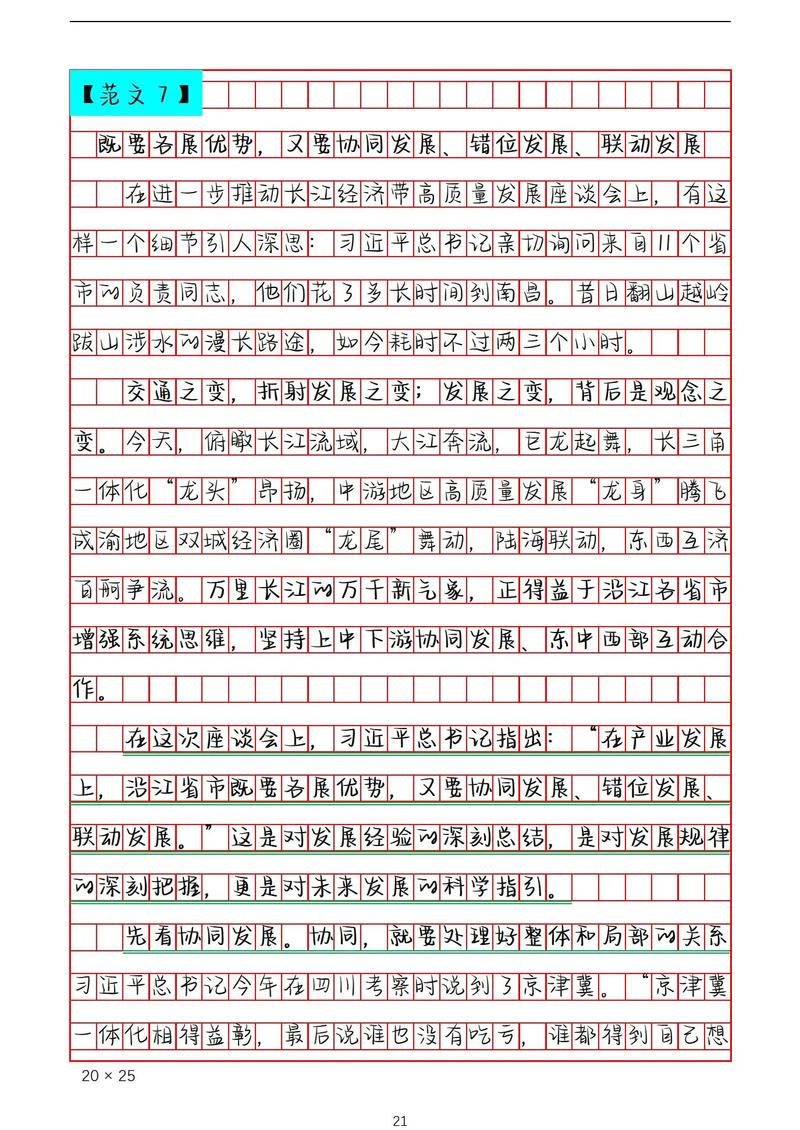 【范文7】
既要各展优势，又要协同发展、错位发展、联动发展
在进一步推动长江经济带高质量发展座谈会上，有这
样一个细节引人深思：习近平总书记亲切询问来自11个省
市的负责同志，他们花了多长时间到南昌。昔日翻山越岭
跋山涉水的漫长路途，如今耗时不过两三个小时。
交通之变，折射发展之变；发展之变，背后是观念之
变。今天，俯瞰长江流域，大江奔流，巨龙起舞，长三角
一体化“龙头”昂扬，中游地区高质量发展“龙身”腾飞
成渝地区双城经济圈“龙尾”舞动，陆海联动，东西互济
百舸争流。万里长江的万千新气象，正得益于沿江各省市
增强系统思维，坚持上中下游协同发展、东中西部互动合
作。
在这次座谈会上，习近平总书记指出：“在产业发展
上，沿江省市既要各展优势，又要协同发展、错位发展、
联动发展。”这是对发展经验的深刻总结，是对发展规律
的深刻把握，更是对未来发展的科学指引。
先看协同发展。协同，就要处理好整体和局部的关系
习近平总书记今年在四川考察时说到了京津冀。“京津冀
一体化相得益彰，最后说谁也没有吃亏，谁都得到自己想
20 × 25
21